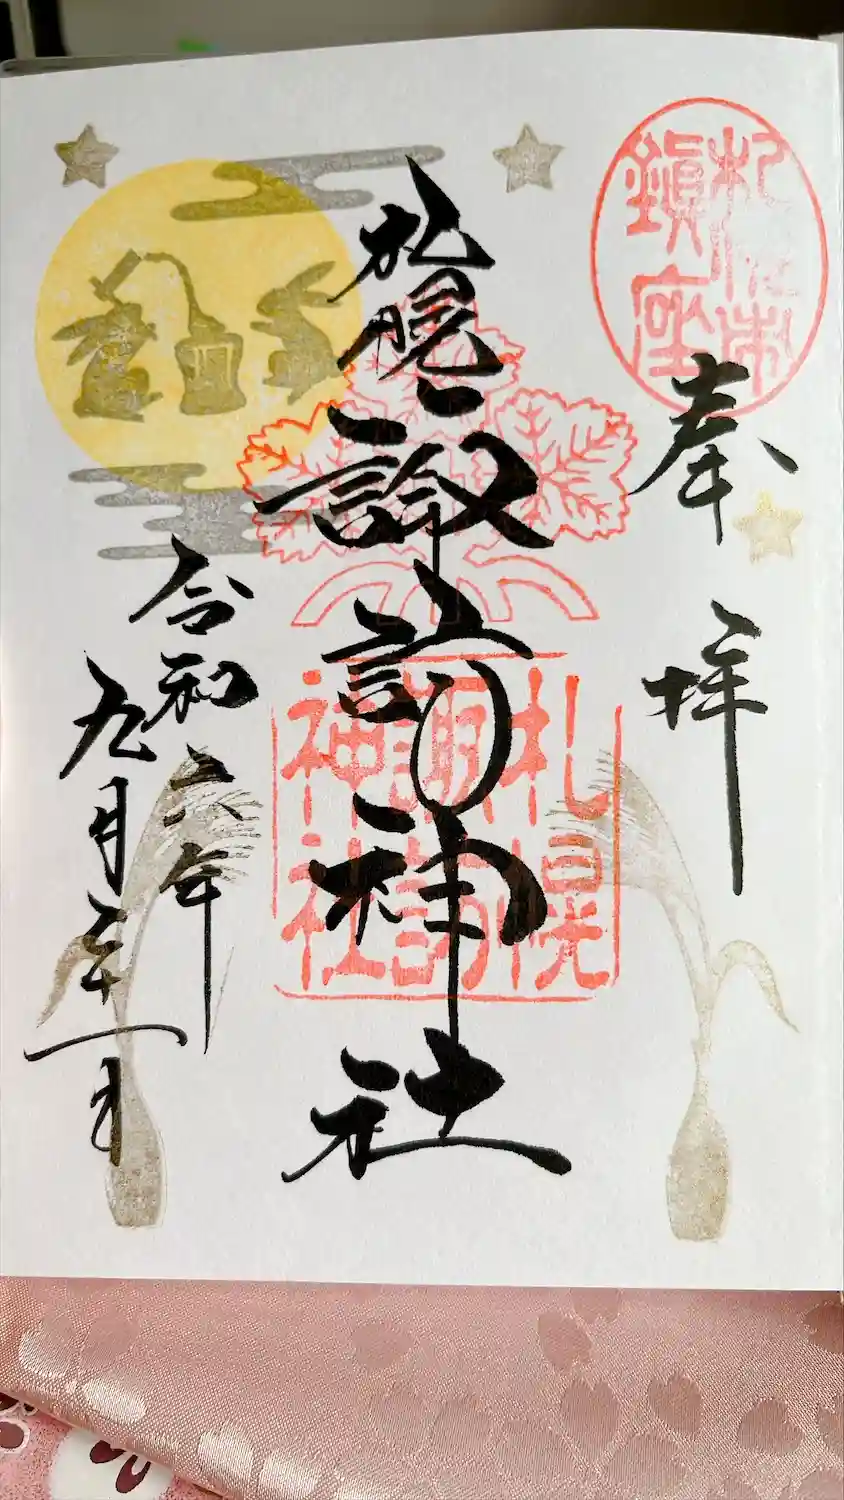 札幌市
鎮座
奉拝
札幌諏訪神社
札幌
諏訪
神社
令和六年
九月二十一日